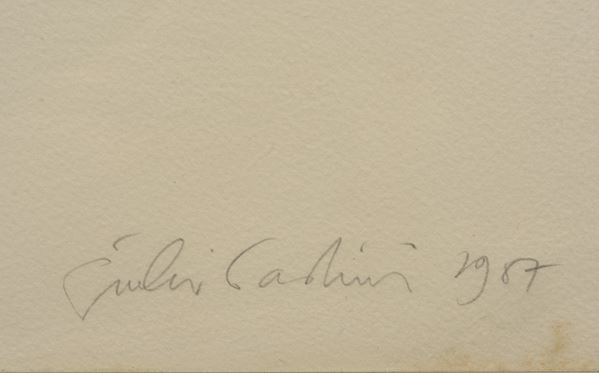 Giulio Paolini 1987